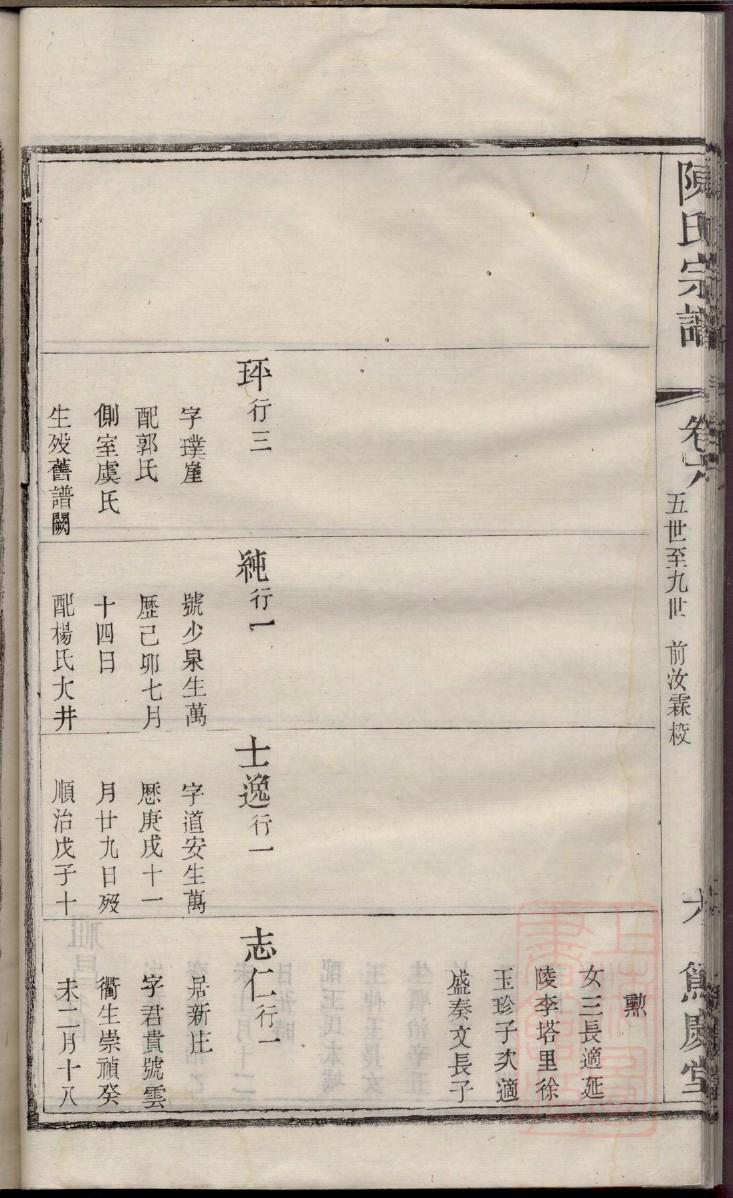 陳氏宗譜
卷六
五世至九世 前汝霖校
六
篤慶堂
玶行三
字璞崖
配郭氏
側室虞氏
生歿舊譜闕
純行一
號少泉生萬
歷己卯七月
十四日
配楊氏大井
士逸行一
字道安生萬
歷庚戌十一
月廿九日歿
順治戊子十
勲
女三長適延
陵李塔里徐
玉珍子次適
盛奏文長子
志仁行一
居新庄
字君貴號雲
衢生崇禎癸
未二月十八